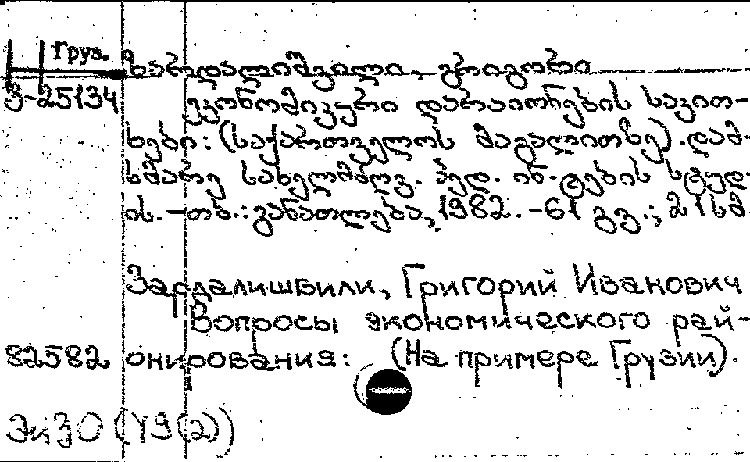 Груз.
ზარდალიშვილი, გრიგორი
З-25134 ეკონომიკური დარაიონების საკით-
ხები: (საქართველოს მაგალითზე). დამ-
ხმარე სახელმძღვ. პედ. ინ-ტების სტუდ-
ის. - თბ.: განათლება, 1982. - 61 გვ.; 21 სმ
Зардалишвили, Григорий Иванович
Вопросы экономического рай-
82582 онирования: (На примере Грузии).
(У9(2))